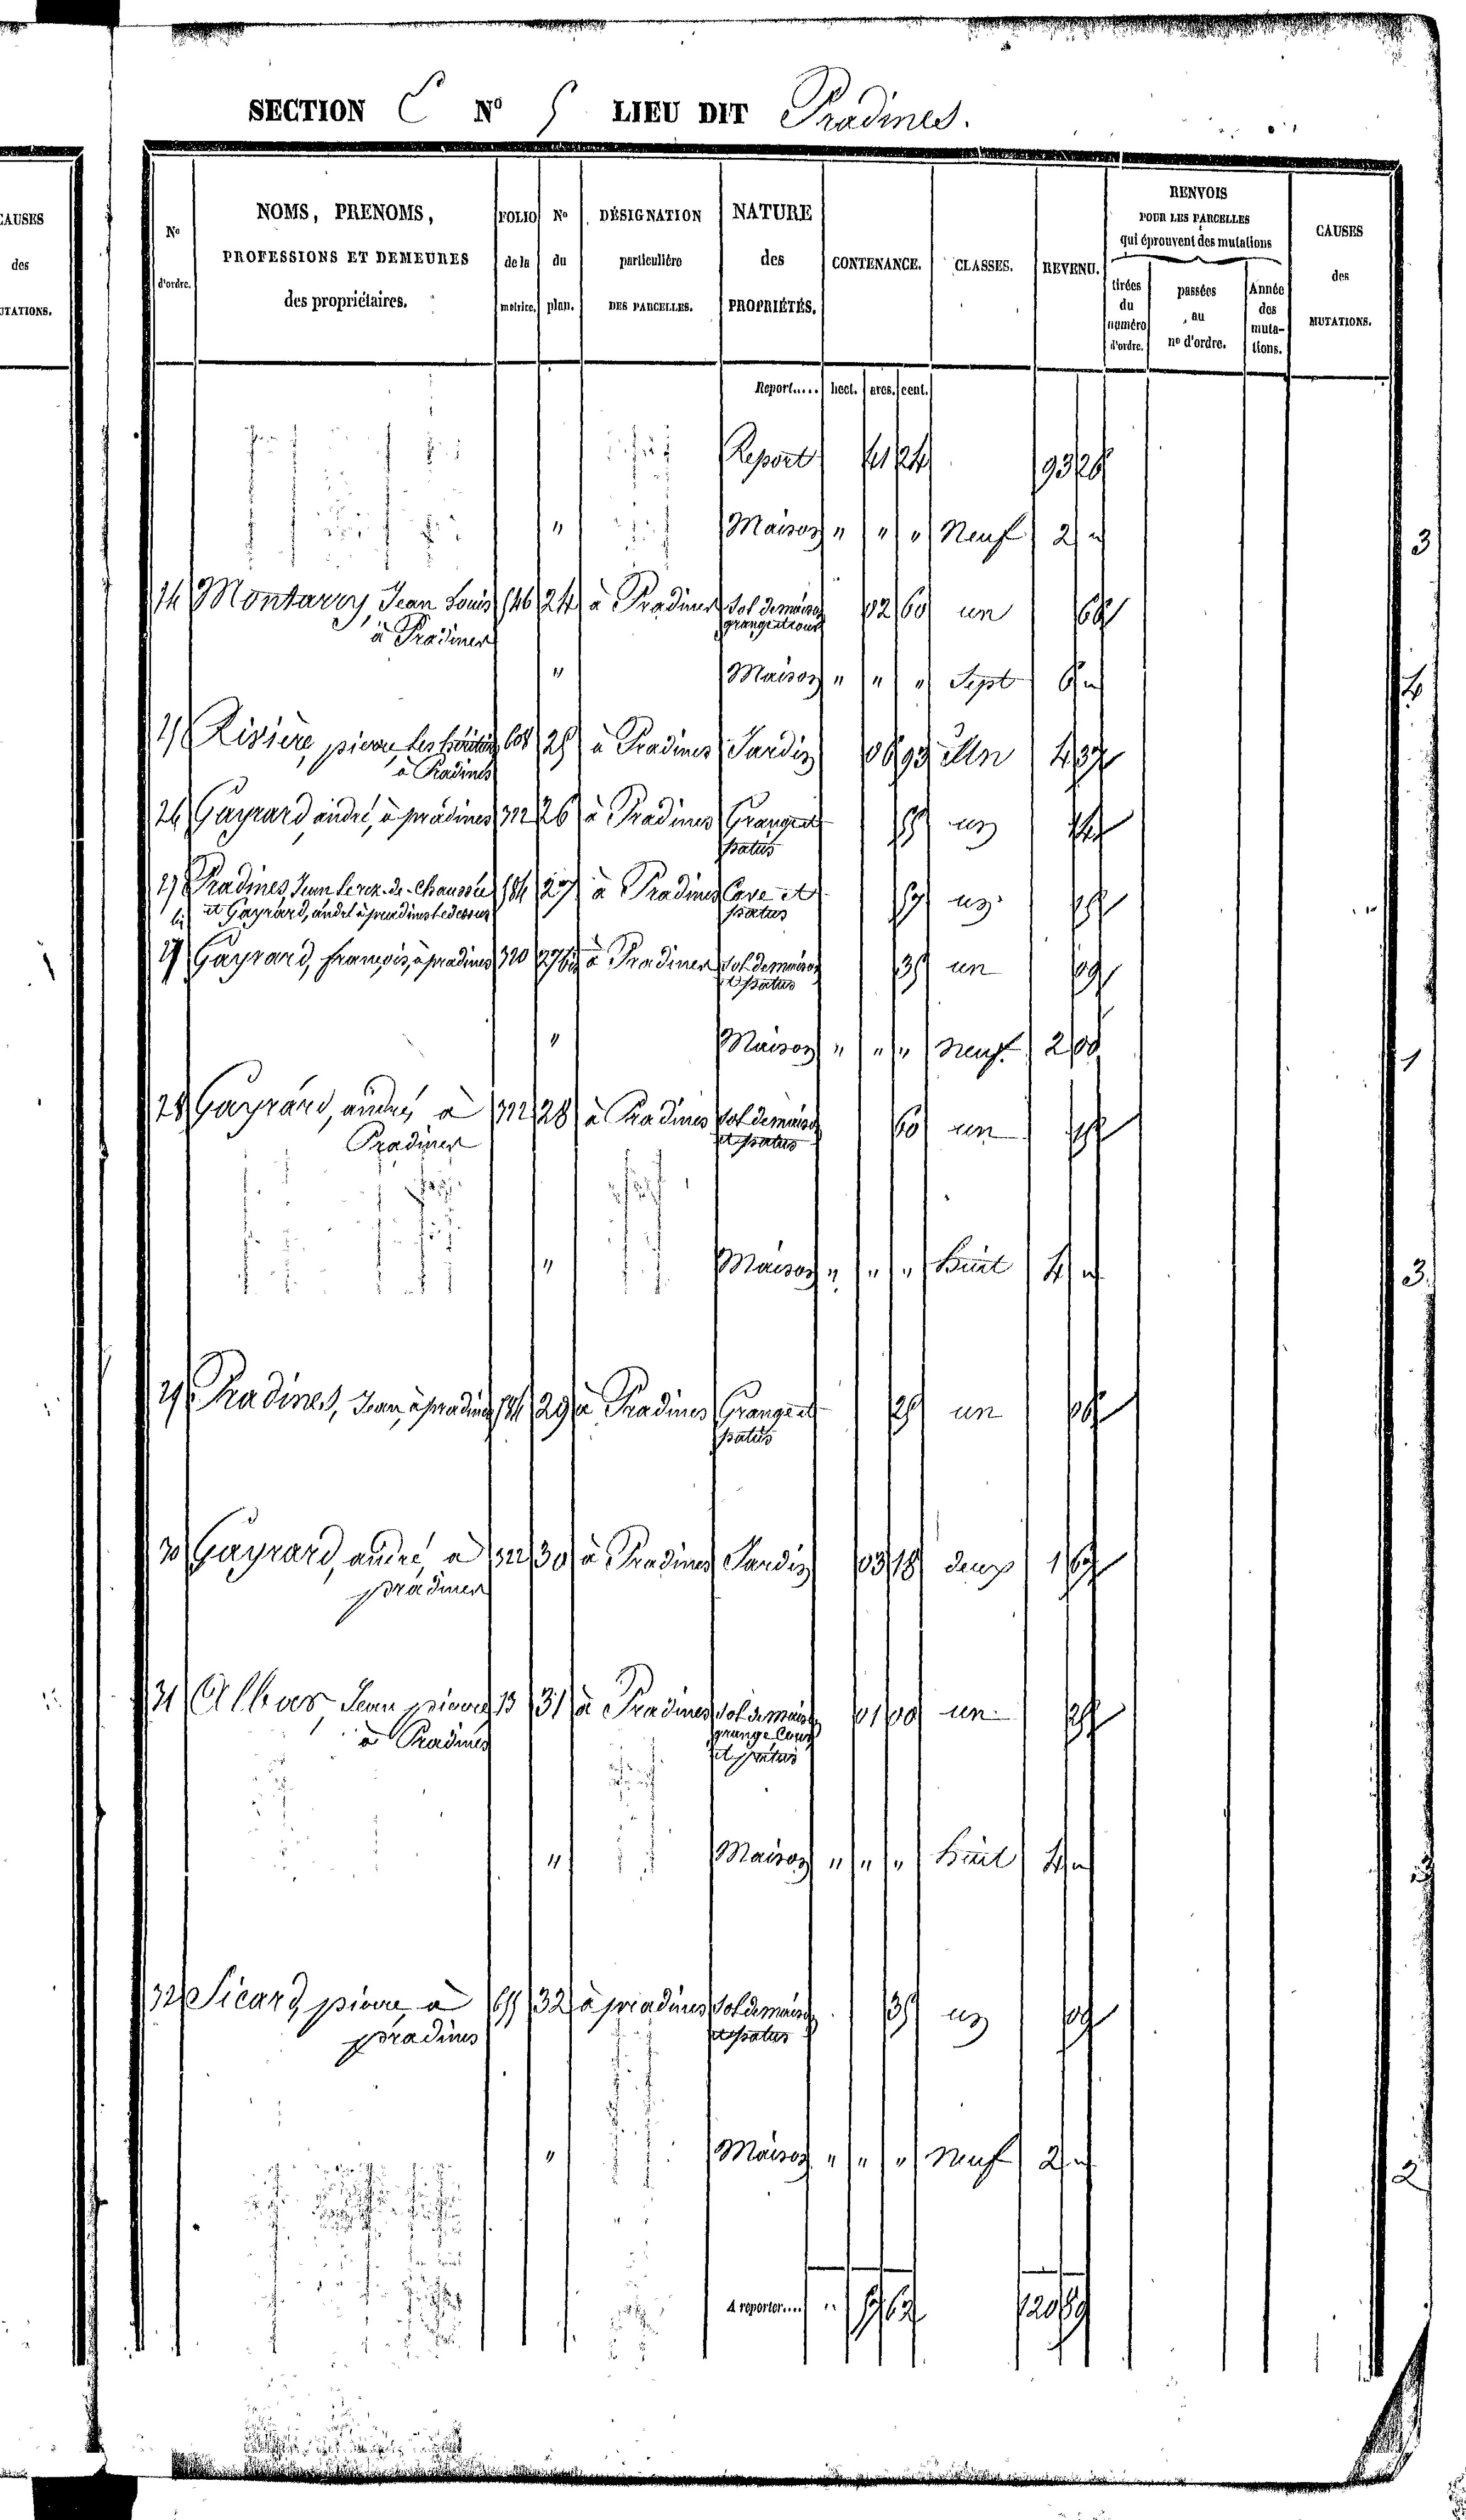 SECTION C N° 5 LIEU DIT Pradines.
CAUSES des MUTATIONS.
N° d'ordre.
NOMS, PRENOMS, PROFESSIONS ET DEMEURES des propriétaires.
FOLIO de la matrice.
N° du plan.
DÉSIGNATION particulière DES PARCELLES.
NATURE des PROPRIÉTÉS.
CONTENANCE.
CLASSES.
REVENU.
RENVOIS POUR LES PARCELLES qui éprouvent des mutations
tirées du numéro d'ordre.
passées au no d'ordre.
Année des mutations.
CAUSES des MUTATIONS.
Report..... hect. ares. cent.
Report 41 24 93 26
" Maison " " " Neuf 2 "
3
24 Jean Louis 546 24 à Pradines Sol de maison 02 60 un 66
à Pradines
" Maison " " " Sept 6 "
4
25 Rivière, pierre, les héritiers 25 à Pradines Jardin 06 93 Un 4 37
à Pradines
26 Gayrard, andré, à pradines 322 26 à Pradines Grange et 55 un 14
patus
27 Pradines, Jean 27 à Pradines Cave et un
et Gayrard, andré à pradines patus
27 Gayrard, françois, à pradines 320 27 bis à Pradines Sol de maison 35 un 09
et patus
" Maison " " " Neuf. 2 00
1
28 Gayrard, andré, à 322 28 à Pradines Sol de maison 60 un 15
Pradines et patus
" Maison " " " huit 4 "
3
29 Pradines, Jean, à pradines 29 à Pradines Grange et 25 un 06
patus
30 Gayrard, andré, à 322 30 à Pradines Jardin 03 18 deux 1 67
pradines
31 Jean pierre 13 31 à Pradines Sol de maison 01 00 un 25
à Pradines grange Cour
et patus
" Maison " " " huit 4 "
3
32 Sicard, pierre, à 32 à pradines Sol de maison 35 un 09
pradines et patus
" Maison " " " Neuf 2 "
2
A reporter.... " 57 62 120 89